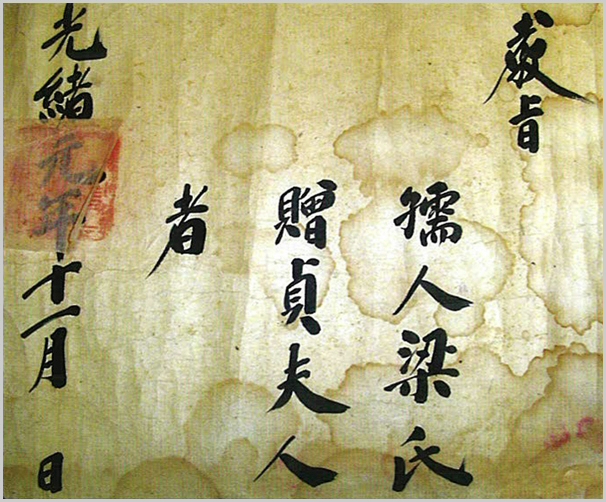 敎旨
孺人梁氏
贈貞夫人
者
光緒元年十一月 日